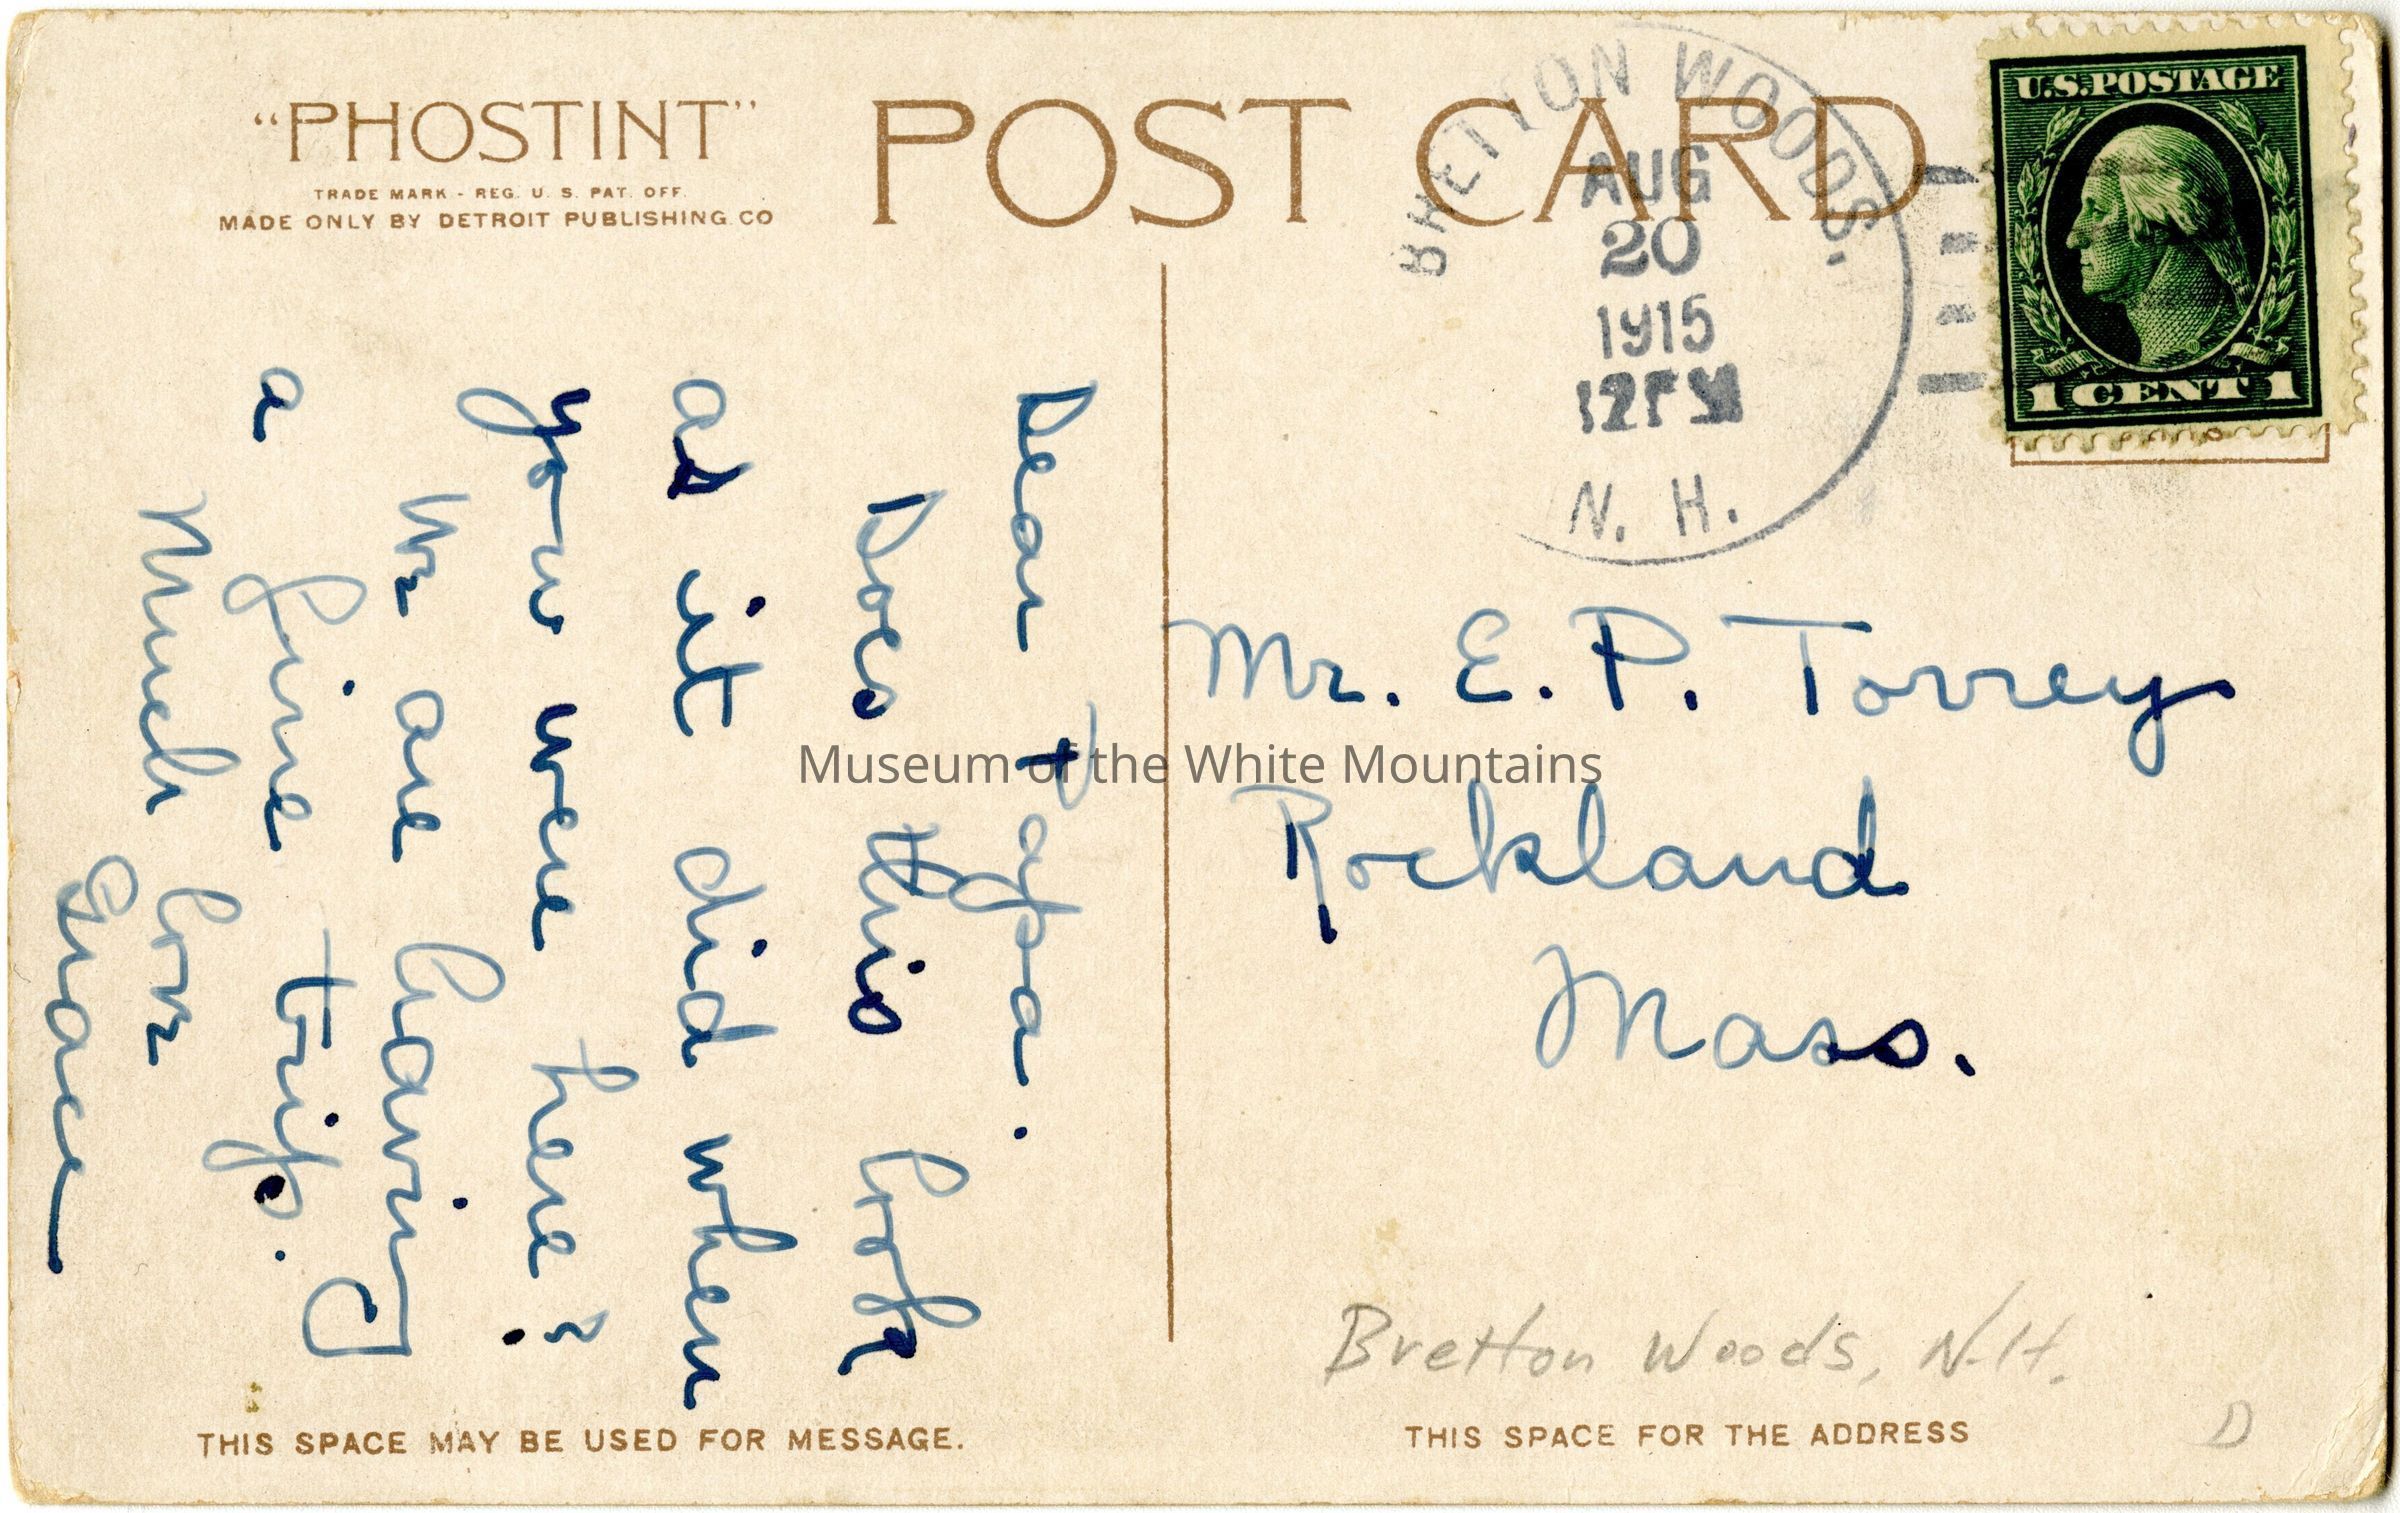 "PHOSTINT"
TRADE MARK - REG. U. S. PAT. OFF.
MADE ONLY BY DETROIT PUBLISHING CO
POST CARD
BRETTON WOODS.
AUG
20
1915
12 PM
N. H.
U.S. POSTAGE
1 CENT 1
Dear Papa.
Does this look
as it did when
you were here?
We are having
a fine trip.
Much love
Grace
Mr. E. P. Torrey
Rockland
Mass.
Museum of the White Mountains
Bretton Woods, N.H.
D
THIS SPACE MAY BE USED FOR MESSAGE.
THIS SPACE FOR THE ADDRESS